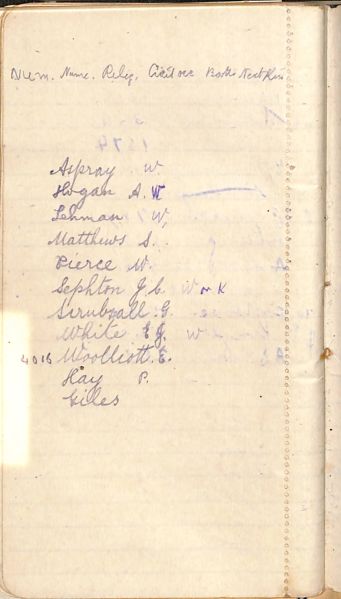 Num. Name. Relig. Boots Next Kin
1574
Aspray W.
Hogan A. W
Lehman W.
Matthews S.
Pierce W.
Sephton J. C. W m K
Scrubsall G.
White E J. W
4016 Woolliott E.
Hay P.
Giles